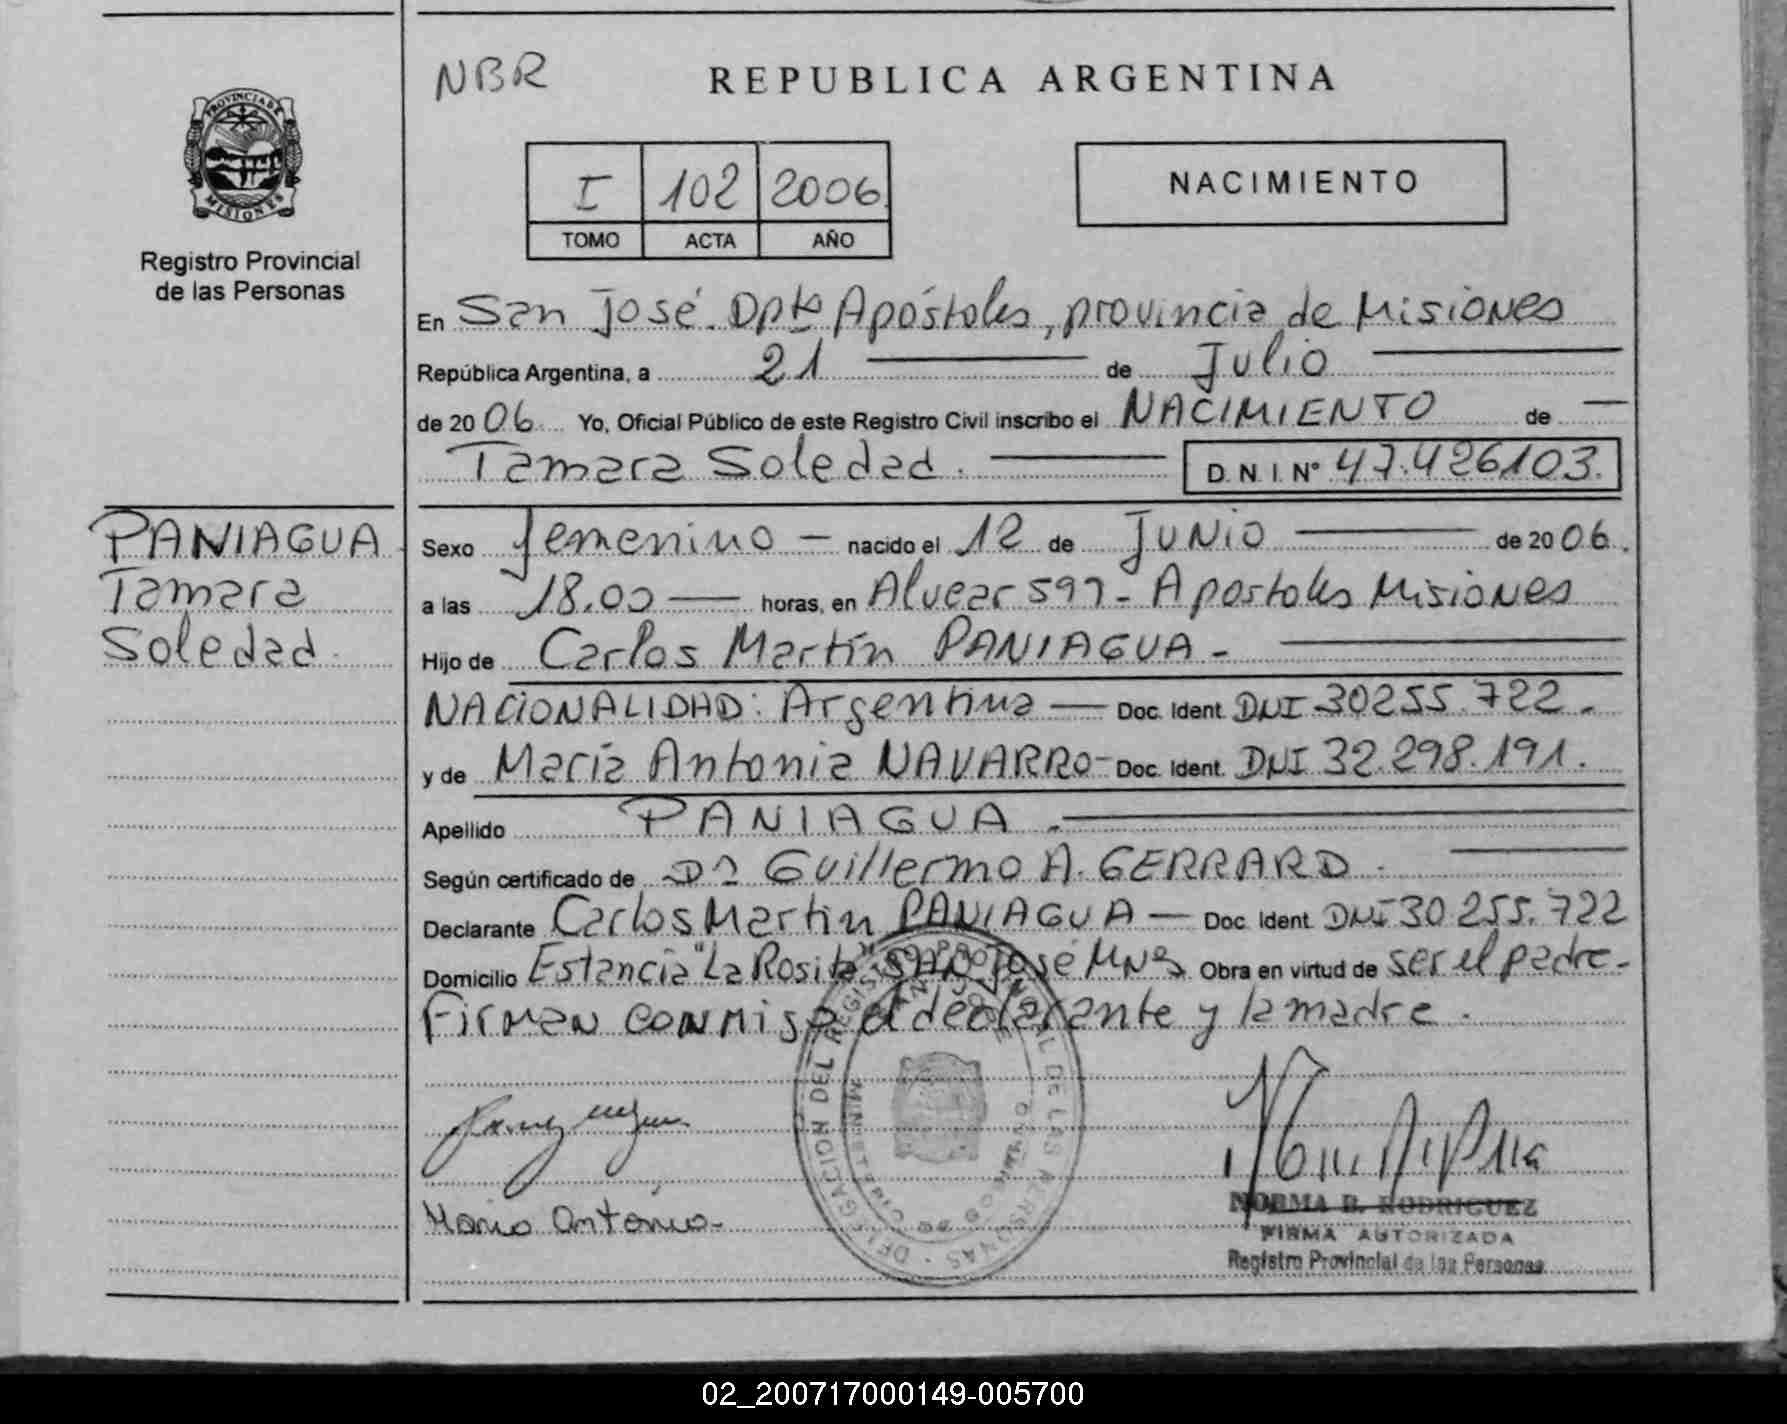 NBR
REPUBLICA ARGENTINA
PROVINCIA DE
MISIONES
Registro Provincial
de las Personas
I 102 2006
TOMO ACTA AÑO
NACIMIENTO
En San José. Dpto Apóstoles, provincia de Misiones
República Argentina, a 21 de Julio
de 2006. Yo, Oficial Público de este Registro Civil inscribo el NACIMIENTO de
Tamara Soledad. D.N.I. N° 47.426103.
PANIAGUA
Tamara
Soledad.
Sexo femenino nacido el 12 de JUNIO de 2006.
a las 18.00 horas, en Alvear 597 - Apostoles Misiones
Hijo de Carlos Martín PANIAGUA -
NACIONALIDAD: Argentina Doc. Ident. DNI 30255.722.
y de María Antonia NAVARRO - Doc. Ident. DNI 32.298.191.
Apellido PANIAGUA.
Según certificado de Dr Guillermo A. GERRARD.
Declarante Carlos Martin PANIAGUA Doc. Ident. DNI 30.255.722
Domicilio Estancia "La Rosita" SAN José Mnes Obra en virtud de ser el padre.
Firman conmigo el declarante y la madre.
DELEGACION DEL REGISTRO PROVINCIAL DE LAS PERSONAS
NORMA B. RODRIGUEZ
FIRMA AUTORIZADA
Registro Provincial de las Personas
02_200717000149-005700